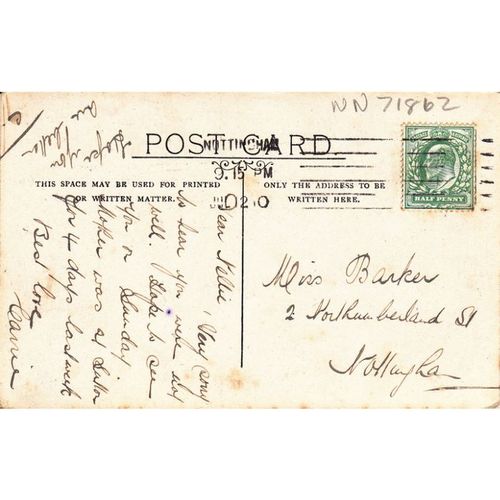 NN 71862
POST CARD.
NOTTINGHAM
9.15 PM
THIS SPACE MAY BE USED FOR PRINTED
OR WRITTEN MATTER.
ONLY THE ADDRESS TO BE
WRITTEN HERE.
HALF PENNY
Dear Nellie, Very sorry
to hear you were not
well. Hope to see
you on Sunday
Mother was at
for 4 days last week
Best love
Carrie
Hope you
are better
Miss Barker
2 Northumberland St
Nottingham